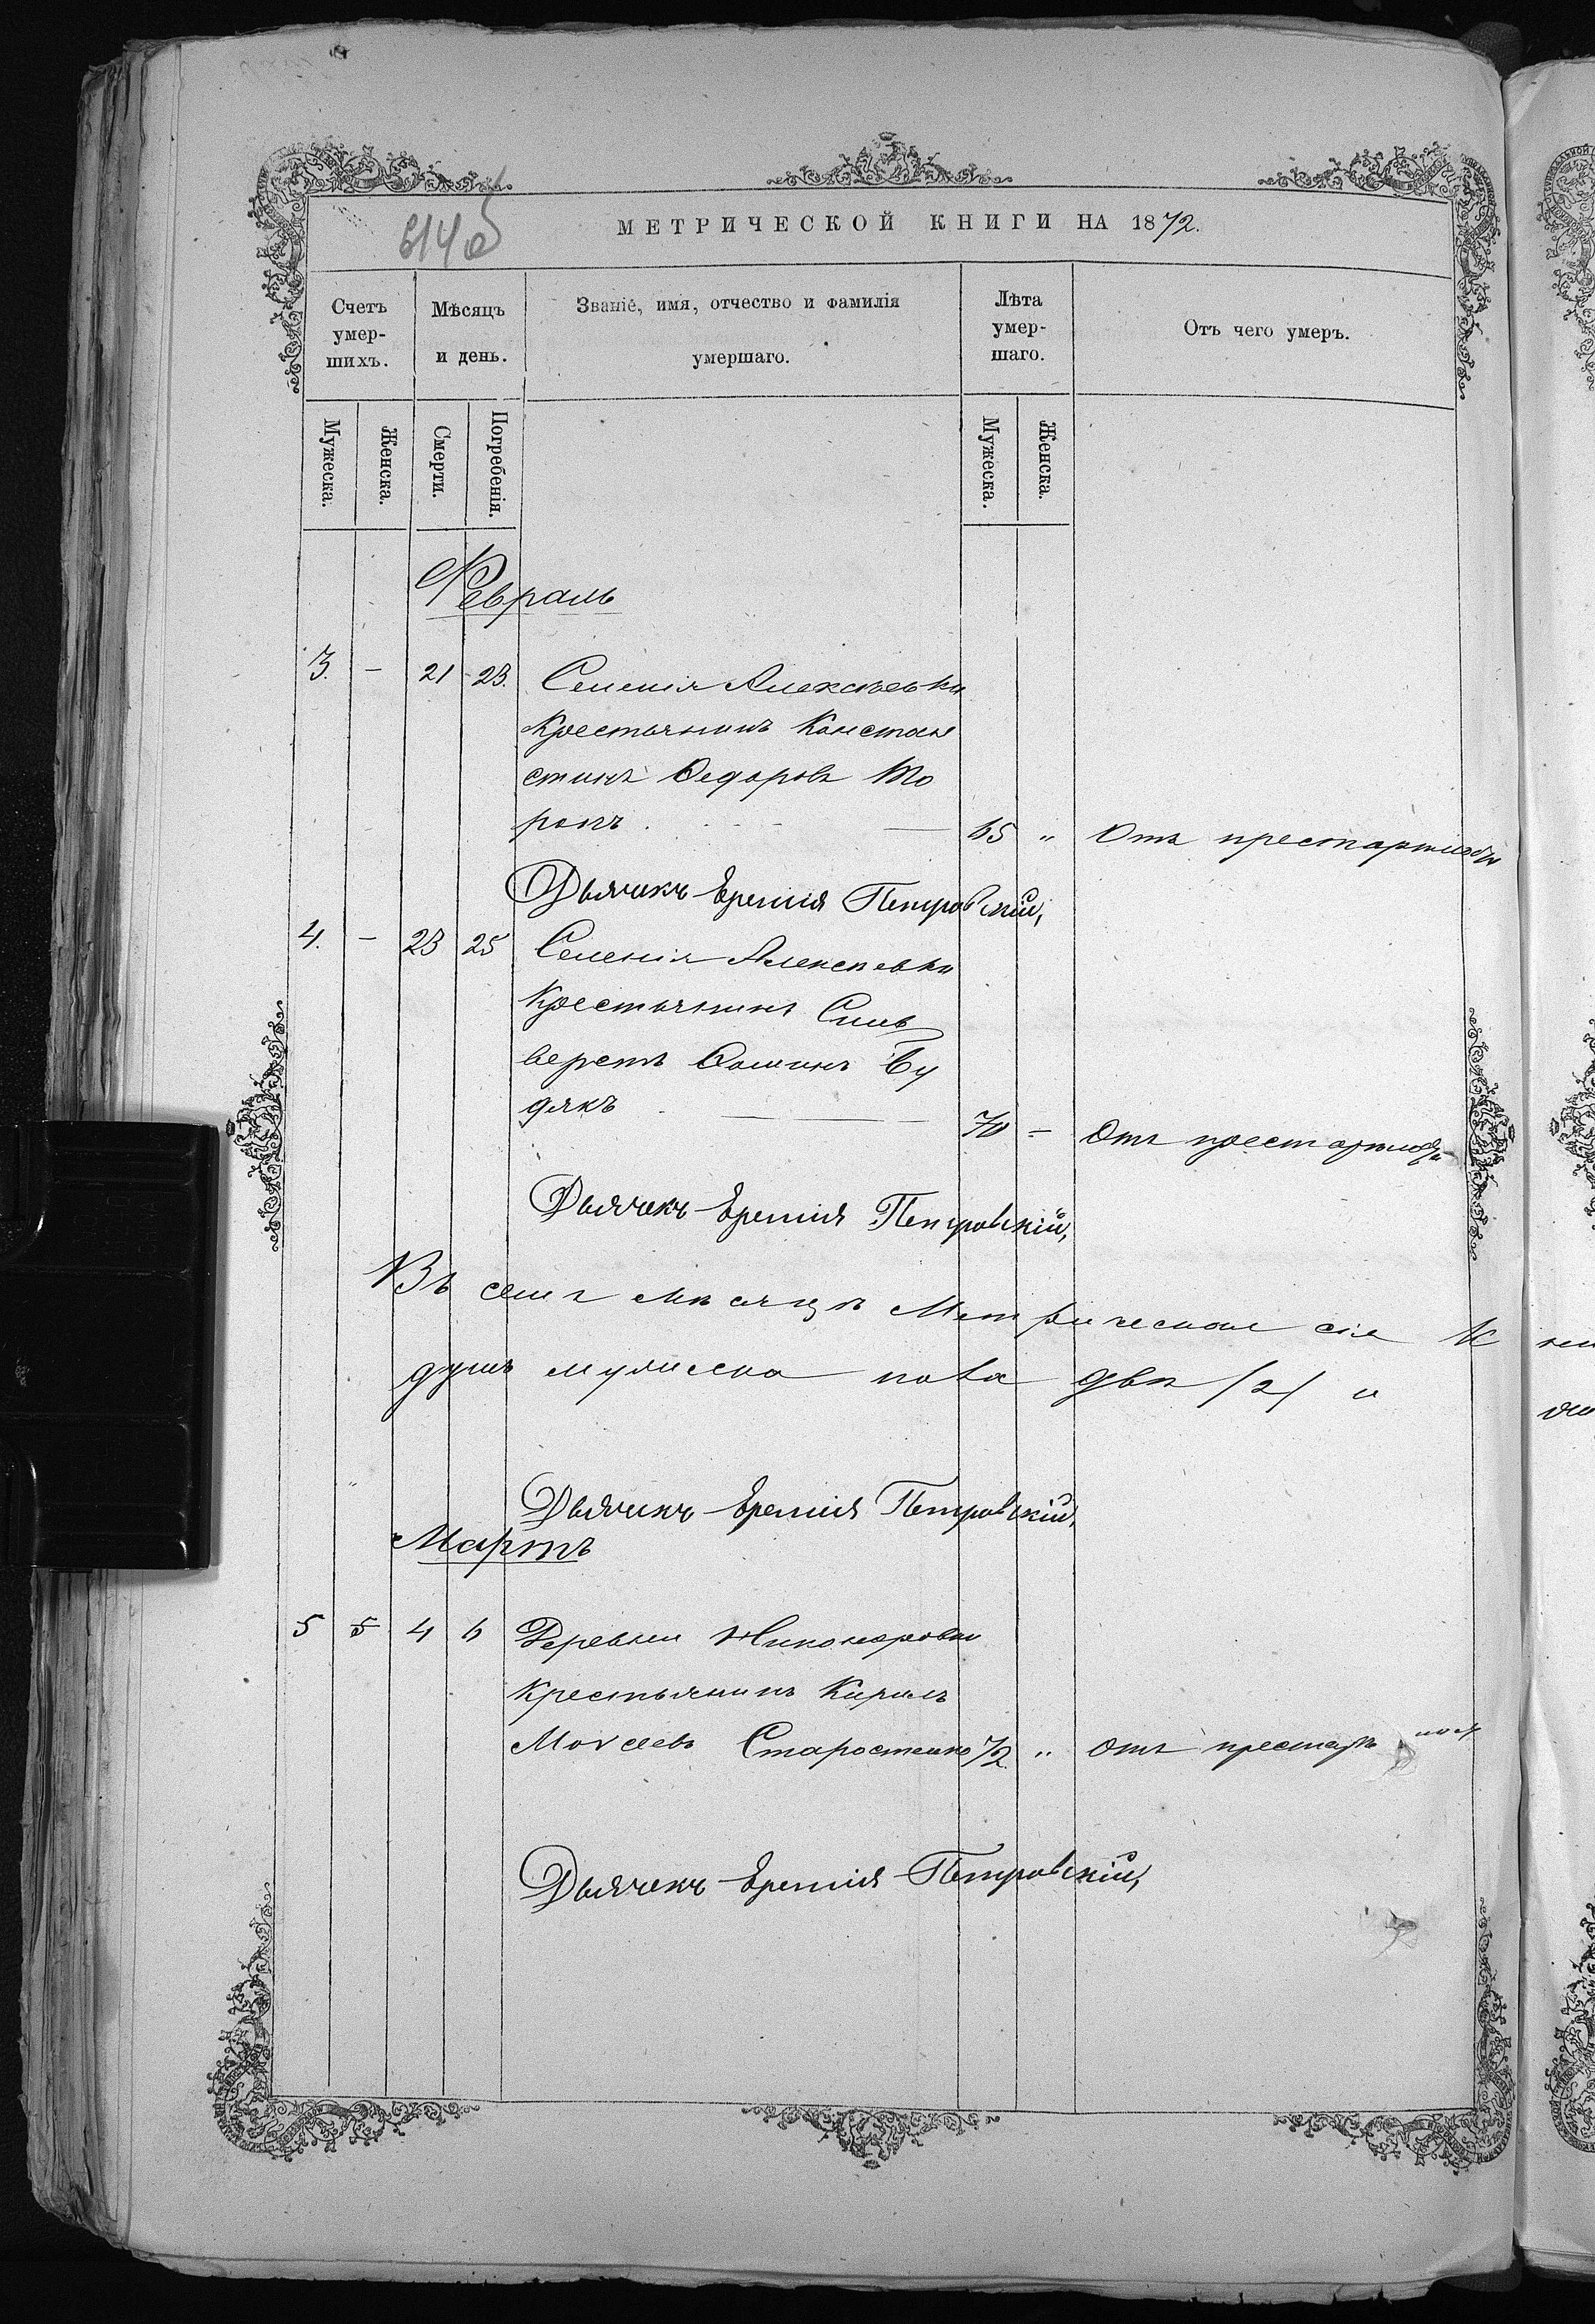 614 об
МЕТРИЧЕСКОЙ КНИГИ НА 1872.
Счетъ умер-шихъ.
Мѣсяцъ и день.
Званіе, имя, отчество и фамилія умершаго.
Лѣта умер-шаго.
Отъ чего умеръ.
Мужеска. Женска. Смерти. Погребенія. Мужеска. Женска.
Февраль
3. - 21 23. Селенія Алексѣевки
Крестьянинъ Констан
стинъ Ѳедоровъ Мо
розъ 65 " Отъ престарѣлости
Дьячекъ Еремія Петровскій,
4. - 23 25 Селенія Алексѣевки
Крестьянинъ Силь
верстъ Ѳоминъ Бу
дякъ 70 - Отъ престарѣлости
Дьячекъ Еремія Петровскій,
Въ семъ мѣсяцѣ Метрическая сія К
душъ мужеска пола двѣ /2/ и
Дьячекъ Еремія Петровскій,
Мартъ
5 5 4 6 Деревни Никоноровки
Крестьянинъ Кирилъ
Моѵсеевъ Старостенко 72 " Отъ престарѣлост
Дьячекъ Еремія Петровскій,